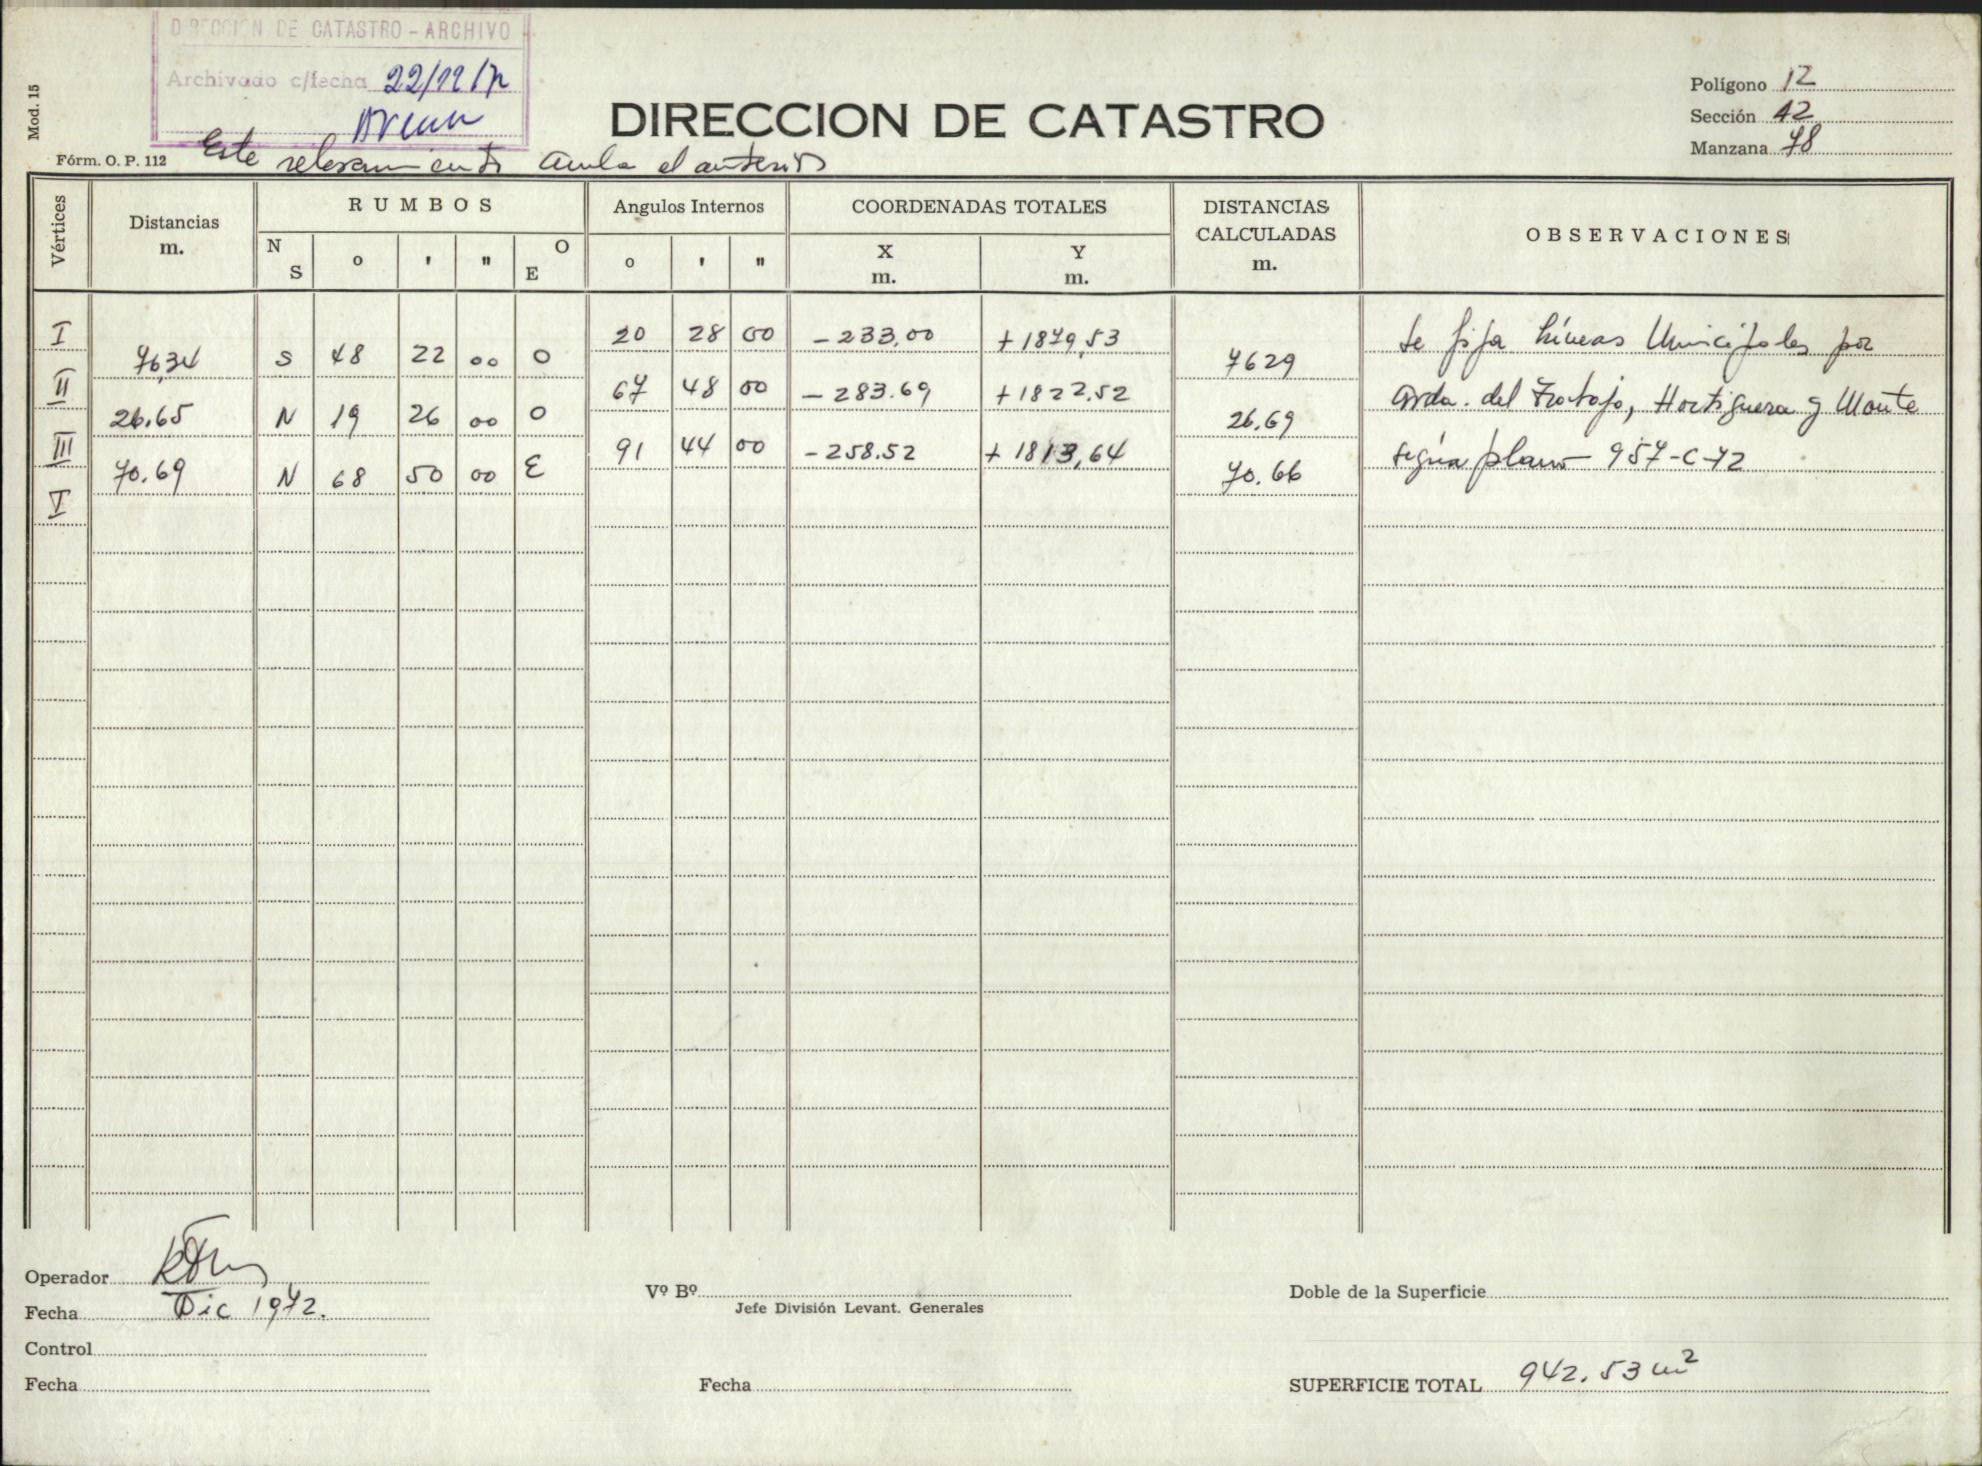 DIRECCION DE CATASTRO - ARCHIVO
Archivado c/fecha 22/12/72
Mod. 15
DIRECCION DE CATASTRO
Polígono 12
Sección 42
Manzana 78
Fórm. O. P. 112
Este relevamiento anula el anterior
Vértices Distancias m. RUMBOS Angulos Internos COORDENADAS TOTALES DISTANCIAS CALCULADAS m. OBSERVACIONES
N S o ' " O E o ' " X m. Y m.
I 20 28 00 -233,00 +1879,53 Se fija Líneas Municipales por
76,34 S 48 22 00 O 7629
II 67 48 00 -283.69 +1822.52 Avda. del Trabajo, Hortiguera y Monte
26.65 N 19 26 00 O 26.69
III 91 44 00 -258.52 +1813,64 según plano 957-C-72
70.69 N 68 50 00 E 70.66
V
Operador
Fecha Dic 1972.
Control
Fecha
Vº Bº
Jefe División Levant. Generales
Fecha
Doble de la Superficie
SUPERFICIE TOTAL 942.53 m²